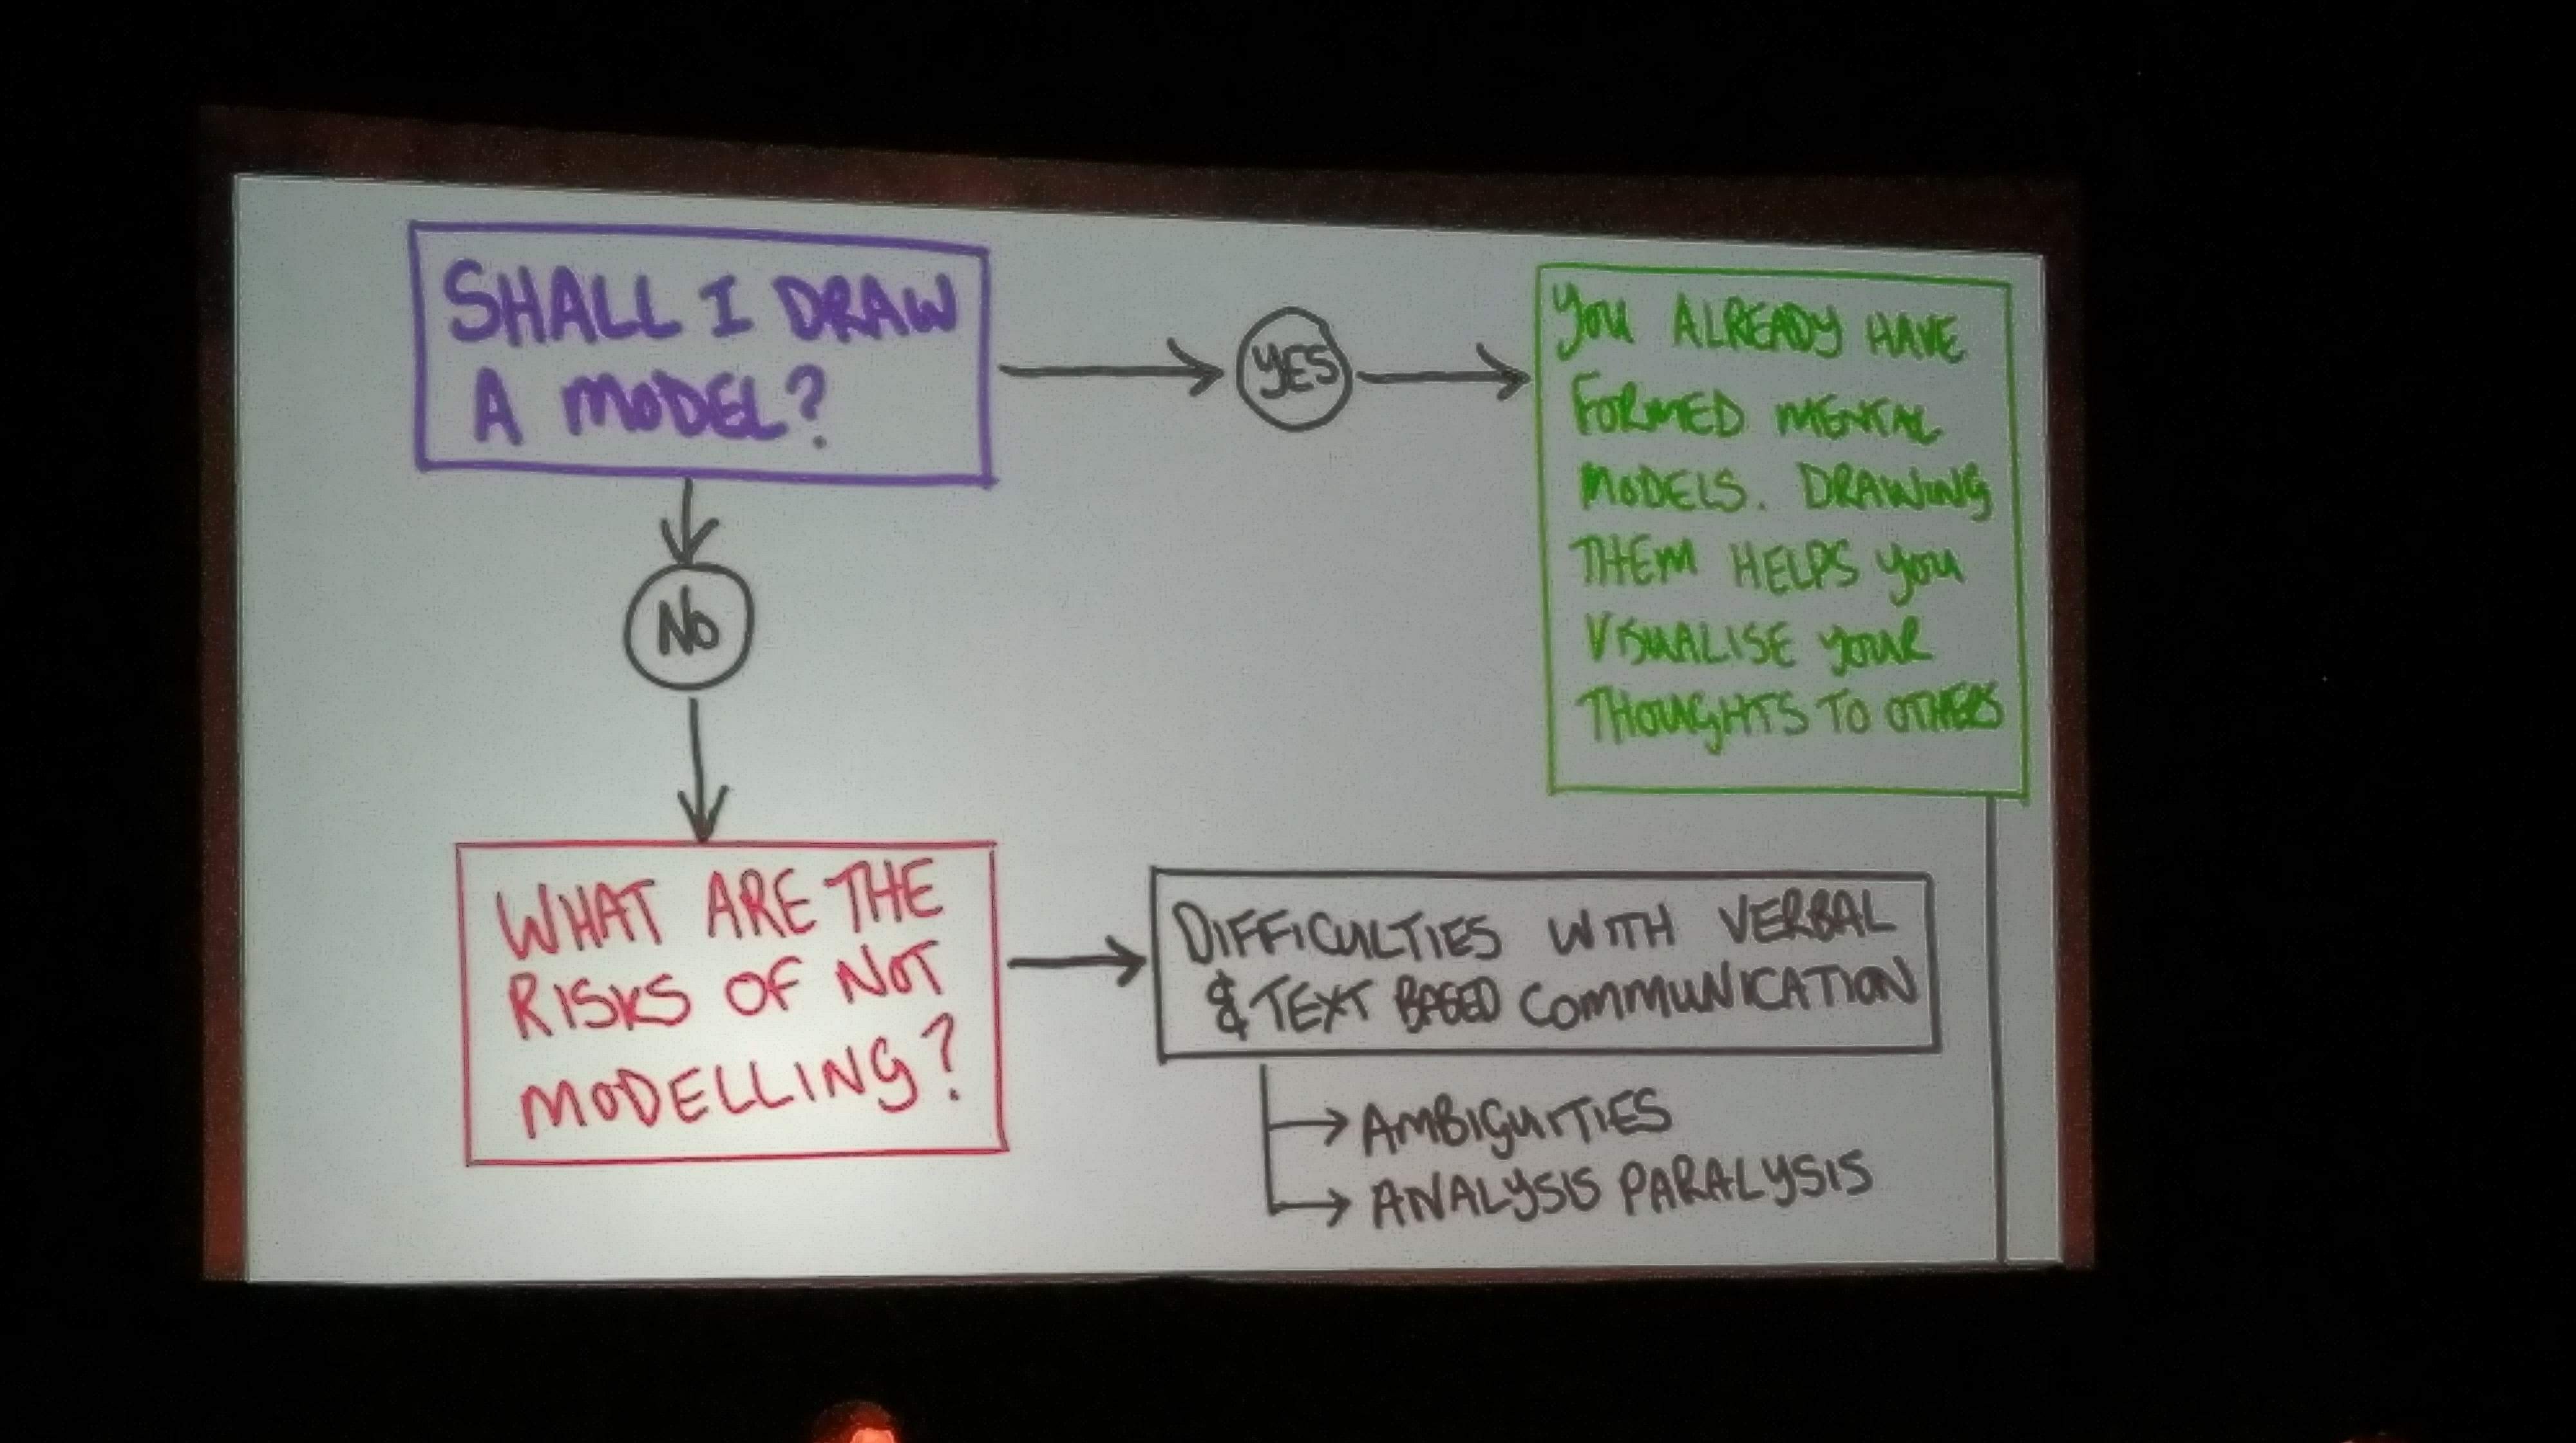 SHALL I DRAW
A MODEL?
YES
YOU ALREADY HAVE
FORMED MENTAL
MODELS. DRAWING
THEM HELPS YOU
VISUALISE YOUR
THOUGHTS TO OTHERS
NO
WHAT ARE THE
RISKS OF NOT
MODELLING?
DIFFICULTIES WITH VERBAL
& TEXT BASED COMMUNICATION
AMBIGUITIES
ANALYSIS PARALYSIS